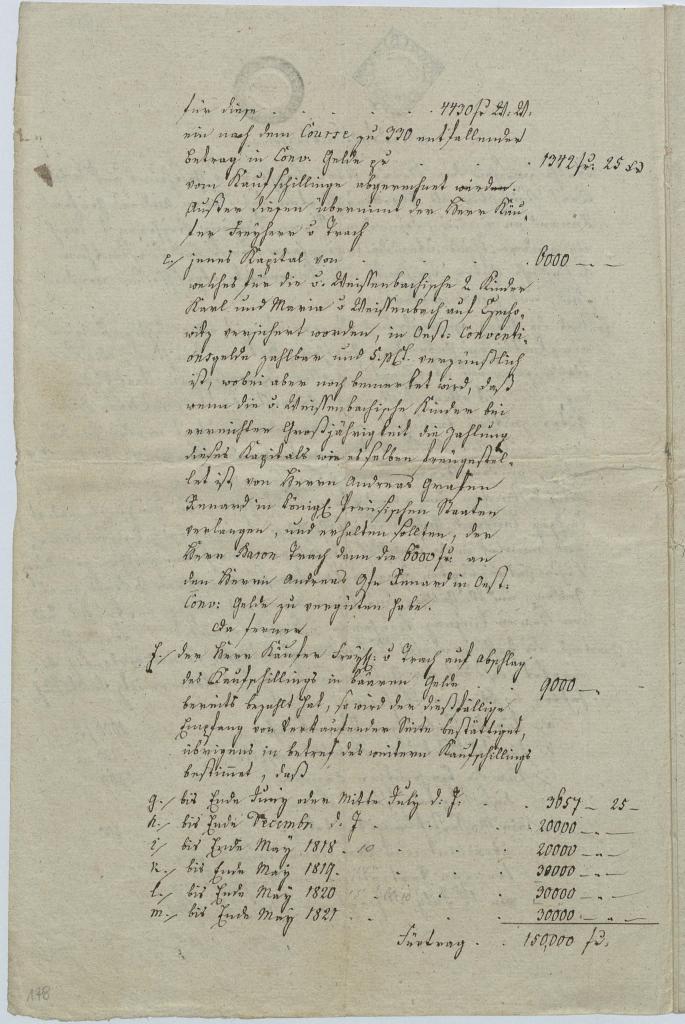 für diese . . . . . 4430 fr W. W.
ein nach dem Course zu 330 entfallender
Betrag in Conv. Gelde pr . . . 1342 fr. 25 xr
vom Kaufschillinge abgerechnet werden.
Außer diesen übernimt der Herr Käu-
fer Freyherr v Trach
e./ jenes Kapital von . . . . 6000 -„-
welches für die v. Weissenbachische 2 Kinder
Karl und Maria v Weissenbach auf Czecho-
witz versichert worden, in Oest: Conventi-
onsgelde zahlbar und 5. pCt. verzünslich
ist, wobei aber noch bemerket wird, daß
wenn die v. Weissenbachische Kinder bei
erreichter Großjährigkeit die Zahlung
dieses Kapitals wie es selben freygestel-
let ist von Herrn Andreas Grafen
Renard in Königl: Preusischen Staaten
verlangen, und erhalten sollten, der
Herr Baron Trach dann die 6000 fr. an
den Herrn Andreas Gfn Renard in Oest:
Conv: Gelde zu vergüten habe.
Da ferner
f./ der Herr Käufer Freyh: v Trach auf Abschlag
des Kaufschillings in baaren Gelde . . 9000 -„
bereits bezahlt hat, so wird der dießfällige
Empfang von Verkaufender Seite bestättiget,
übrigens in betref des weitern Kaufschillings
bestimmet, daß
g./ bis Ende Juny oder Mitte July d. J. . . 3657 - 25 -
h./ bis Ende Decembr d. J . . . 20000 -„-
i./ bis Ende May 1818 . . . 20000 -„-
k./ bis Ende May 1819 . . . 30000 -„-
l./ bis Ende May 1820 . . . 30000 -„-
m./ bis Ende May 1821 . . . 30000 -„-
Fürtrag . . 150,000 fr.
178